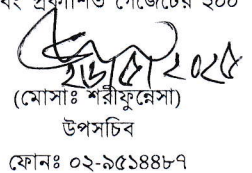 এবং প্রকাশিত গেজেটের ২০০
(মোসাঃ শরীফুন্নেসা)
উপসচিব
ফোনঃ ০২-৯৫১৪৪৮৭